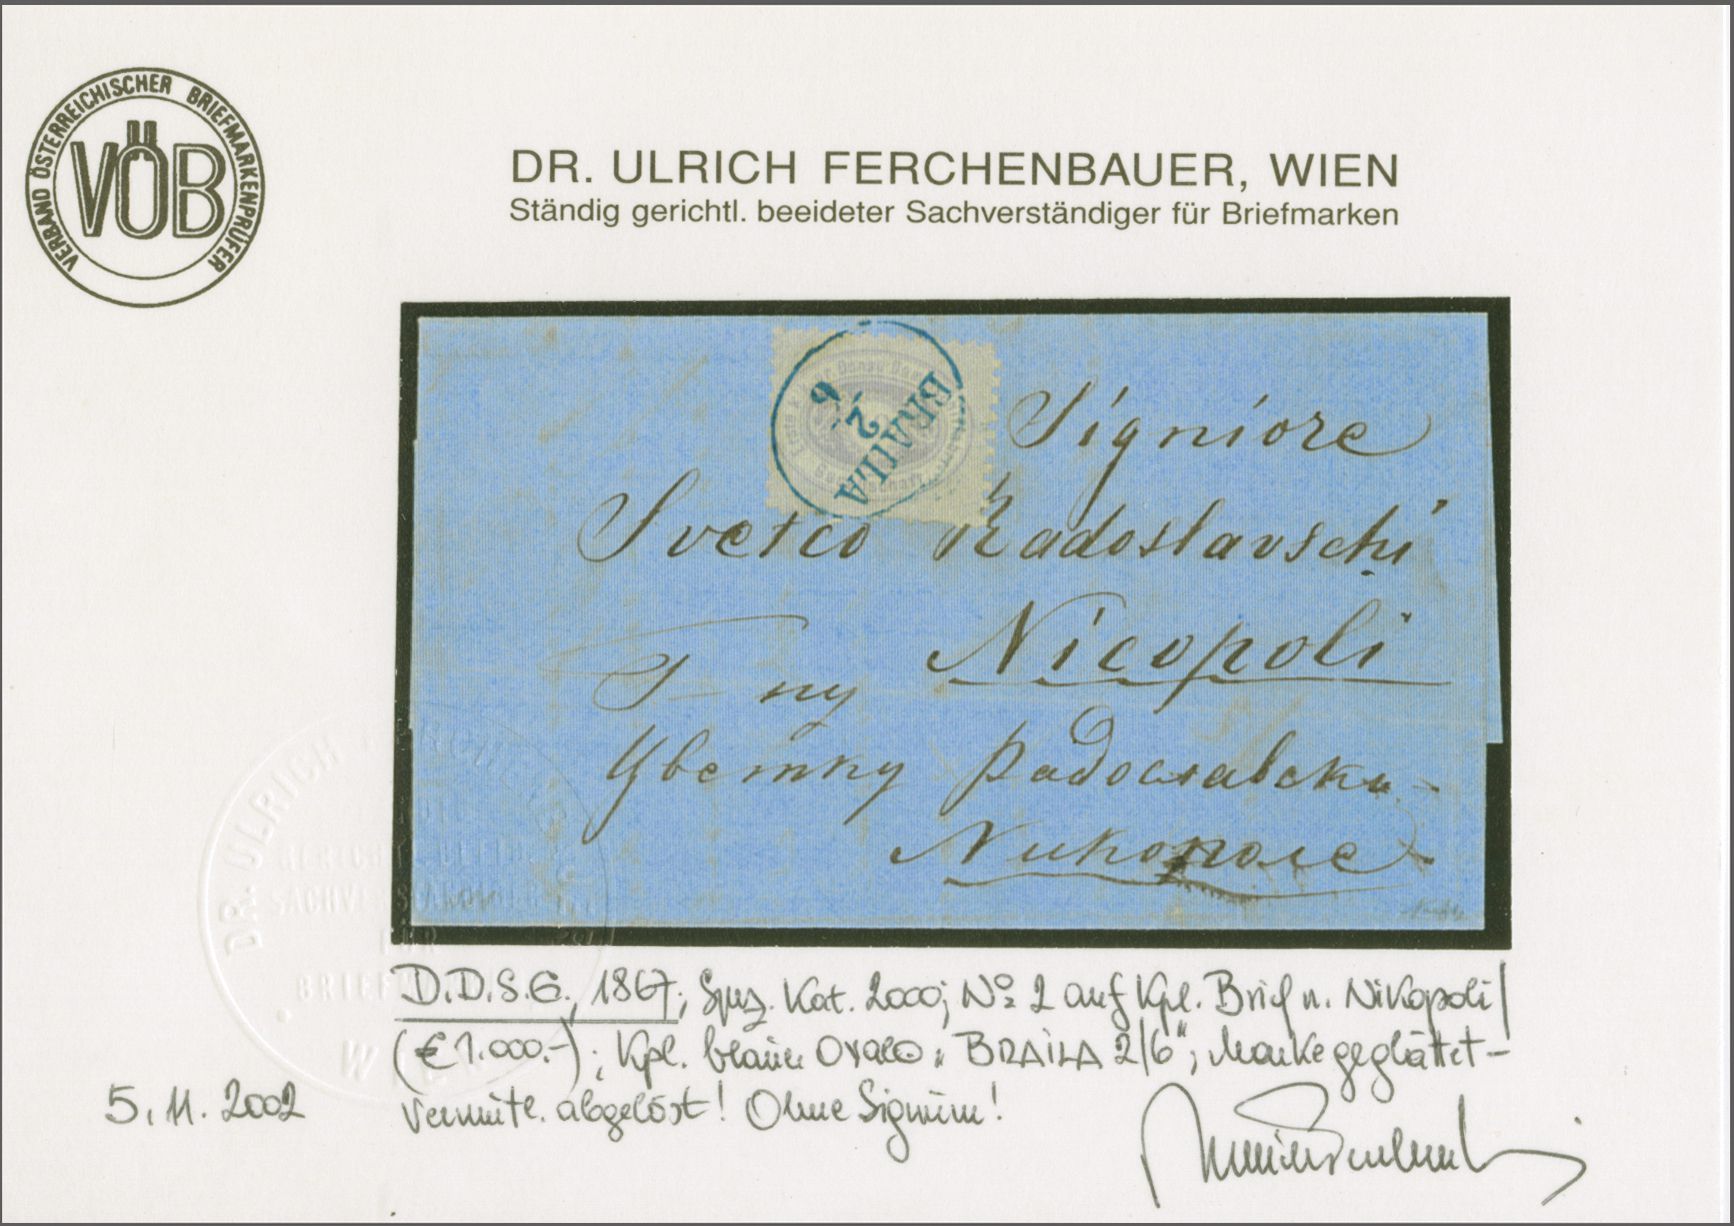 VERBAND ÖSTERREICHISCHER BRIEFMARKENPRÜFER
VÖB
DR. ULRICH FERCHENBAUER, WIEN
Ständig gerichtl. beeideter Sachverständiger für Briefmarken
BRAILA
2
6
Signiore
Svetco Radoslavschi
Nicopoli
Г-ну
Цветку Радославски
Никополе
DR. ULRICH FERCHE
GERICHTL. BEEID.
SACHVERSTÄNDIGER
FÜR
BRIEFM
W
D.D.S.G., 1867; Spez. Kat. 2000; No 2 auf kpl. Brief n. Nikopoli
(€ 1.000.-); kpl. blauer Ovalo "BRAILA 2/6"; Marke geglättet -
vermutl. abgelöst! Ohne Signum!
5. 11. 2002